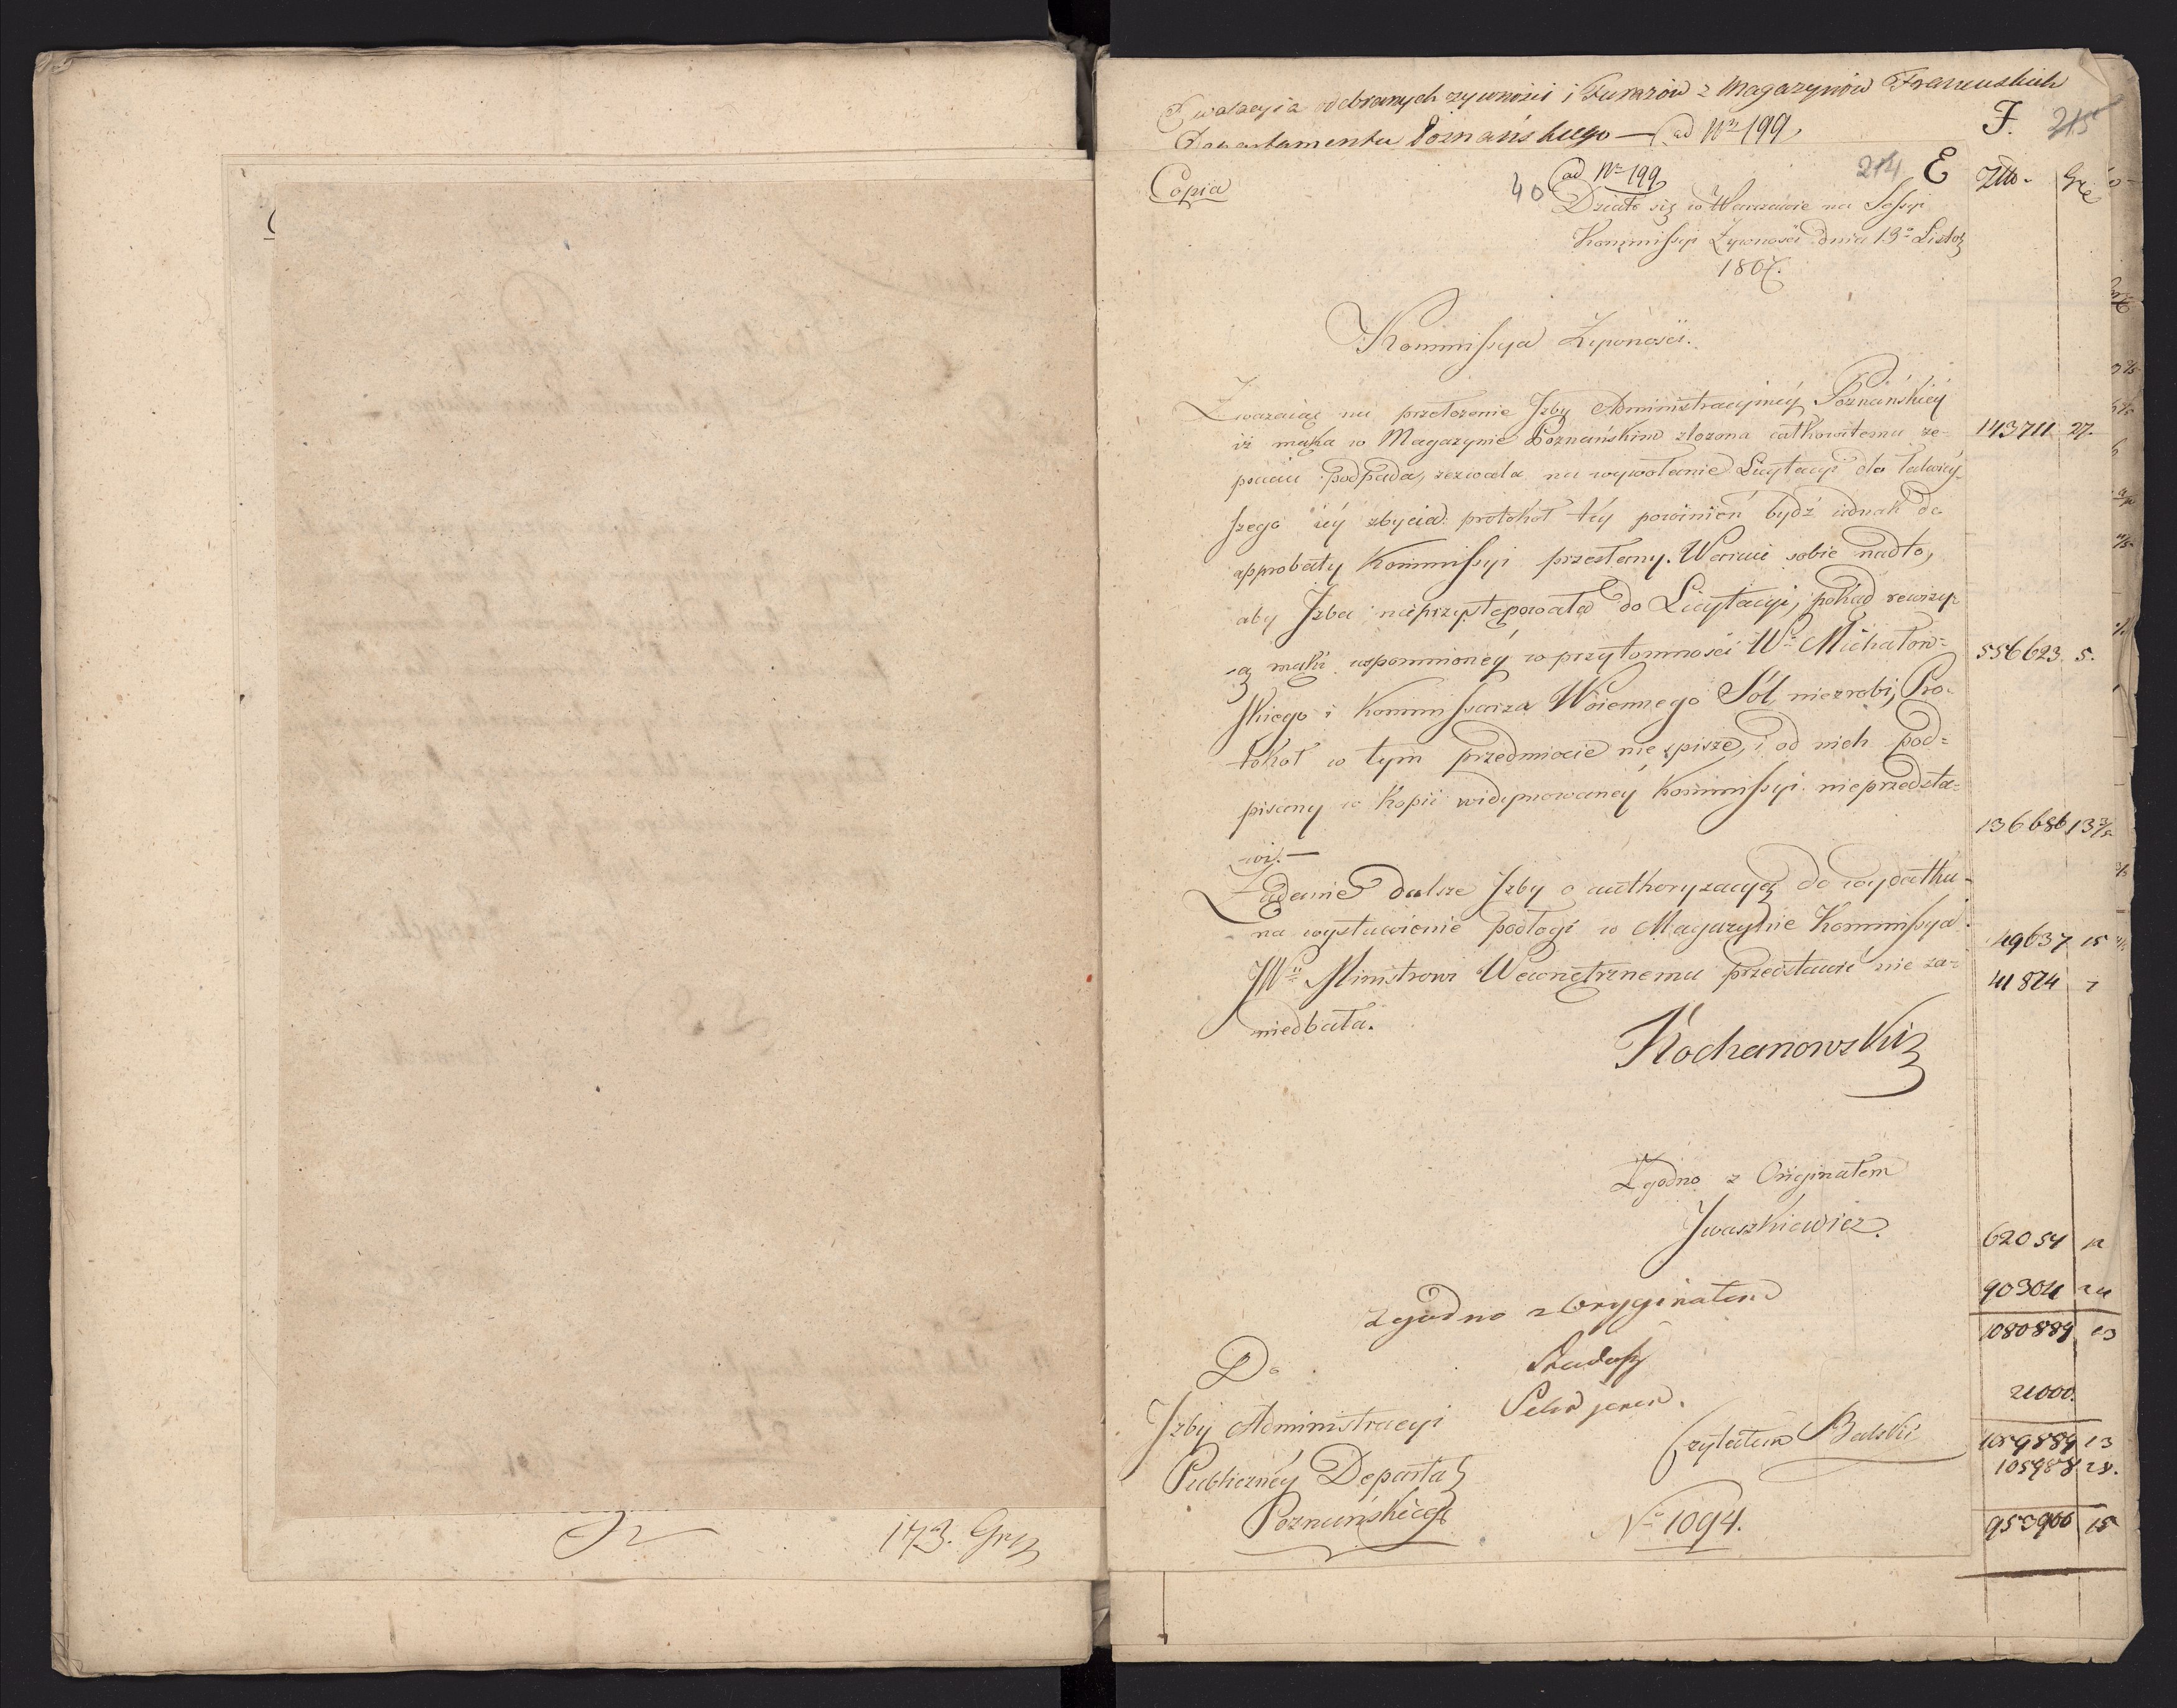 Ewaluacyia odebranych zywnosci i Furazow z Magazynów Francuskich
Departamentu Poznańskiego — ad Nrum 199
F. 215
Copia
40 ad Nr 199
214 E
Złto. Gr.
Działo się w Warszawie na Sessyi
Kommissyi Żywności dnia 13o Listo
1807.
Kommissya Żywności.
Zważaiąc na przełożenie Izby Administracyiney Poznańskiey
iż mąka w Magazynie Poznańskim złożona całkowitemu ze-
psuciu podpada, zezwala na wywołanie Licytacyi dla łatwiey-
szego iey zbycia: protokoł tey powinien bydź iednak do
approbaty Kommissyi przesłany. Waruie sobie nadto,
aby Izba nieprzystępowała do Licytacyi, pokąd rewizyi
mąki wspomnioney w przytomności Wo Michałow=
skiego i Kommissarza Woiennego Sól niezrobi, Pro-
tokoł w tym przedmiocie nie spisze, i od nich pod=
pisany w Kopii widymowaney Kommissyi nieprzedsta=
wi. —
Żądanie dalsze Izby o authoryzacyą do wydatku
na wystawienie podłogi w Magazynie Kommissya
JWu Ministrowi Wewnętrznemu przedstawić nie za=
niedbała.
Kochanowski
Zgodno z Originałem
Iwaszkiewicz.
Zgodno z Oryginałem
Do
Izby Administracyi
Publiczney Departa
Poznańskiego
Czytałem Balski
No 1094.
143711 27.
556623. 5.
136686 13 3/5
49637 15
41824 7
62054 12
90304 24
1080889 13
21000.
1059889 13
105988 28.
953900 15
173. Gr